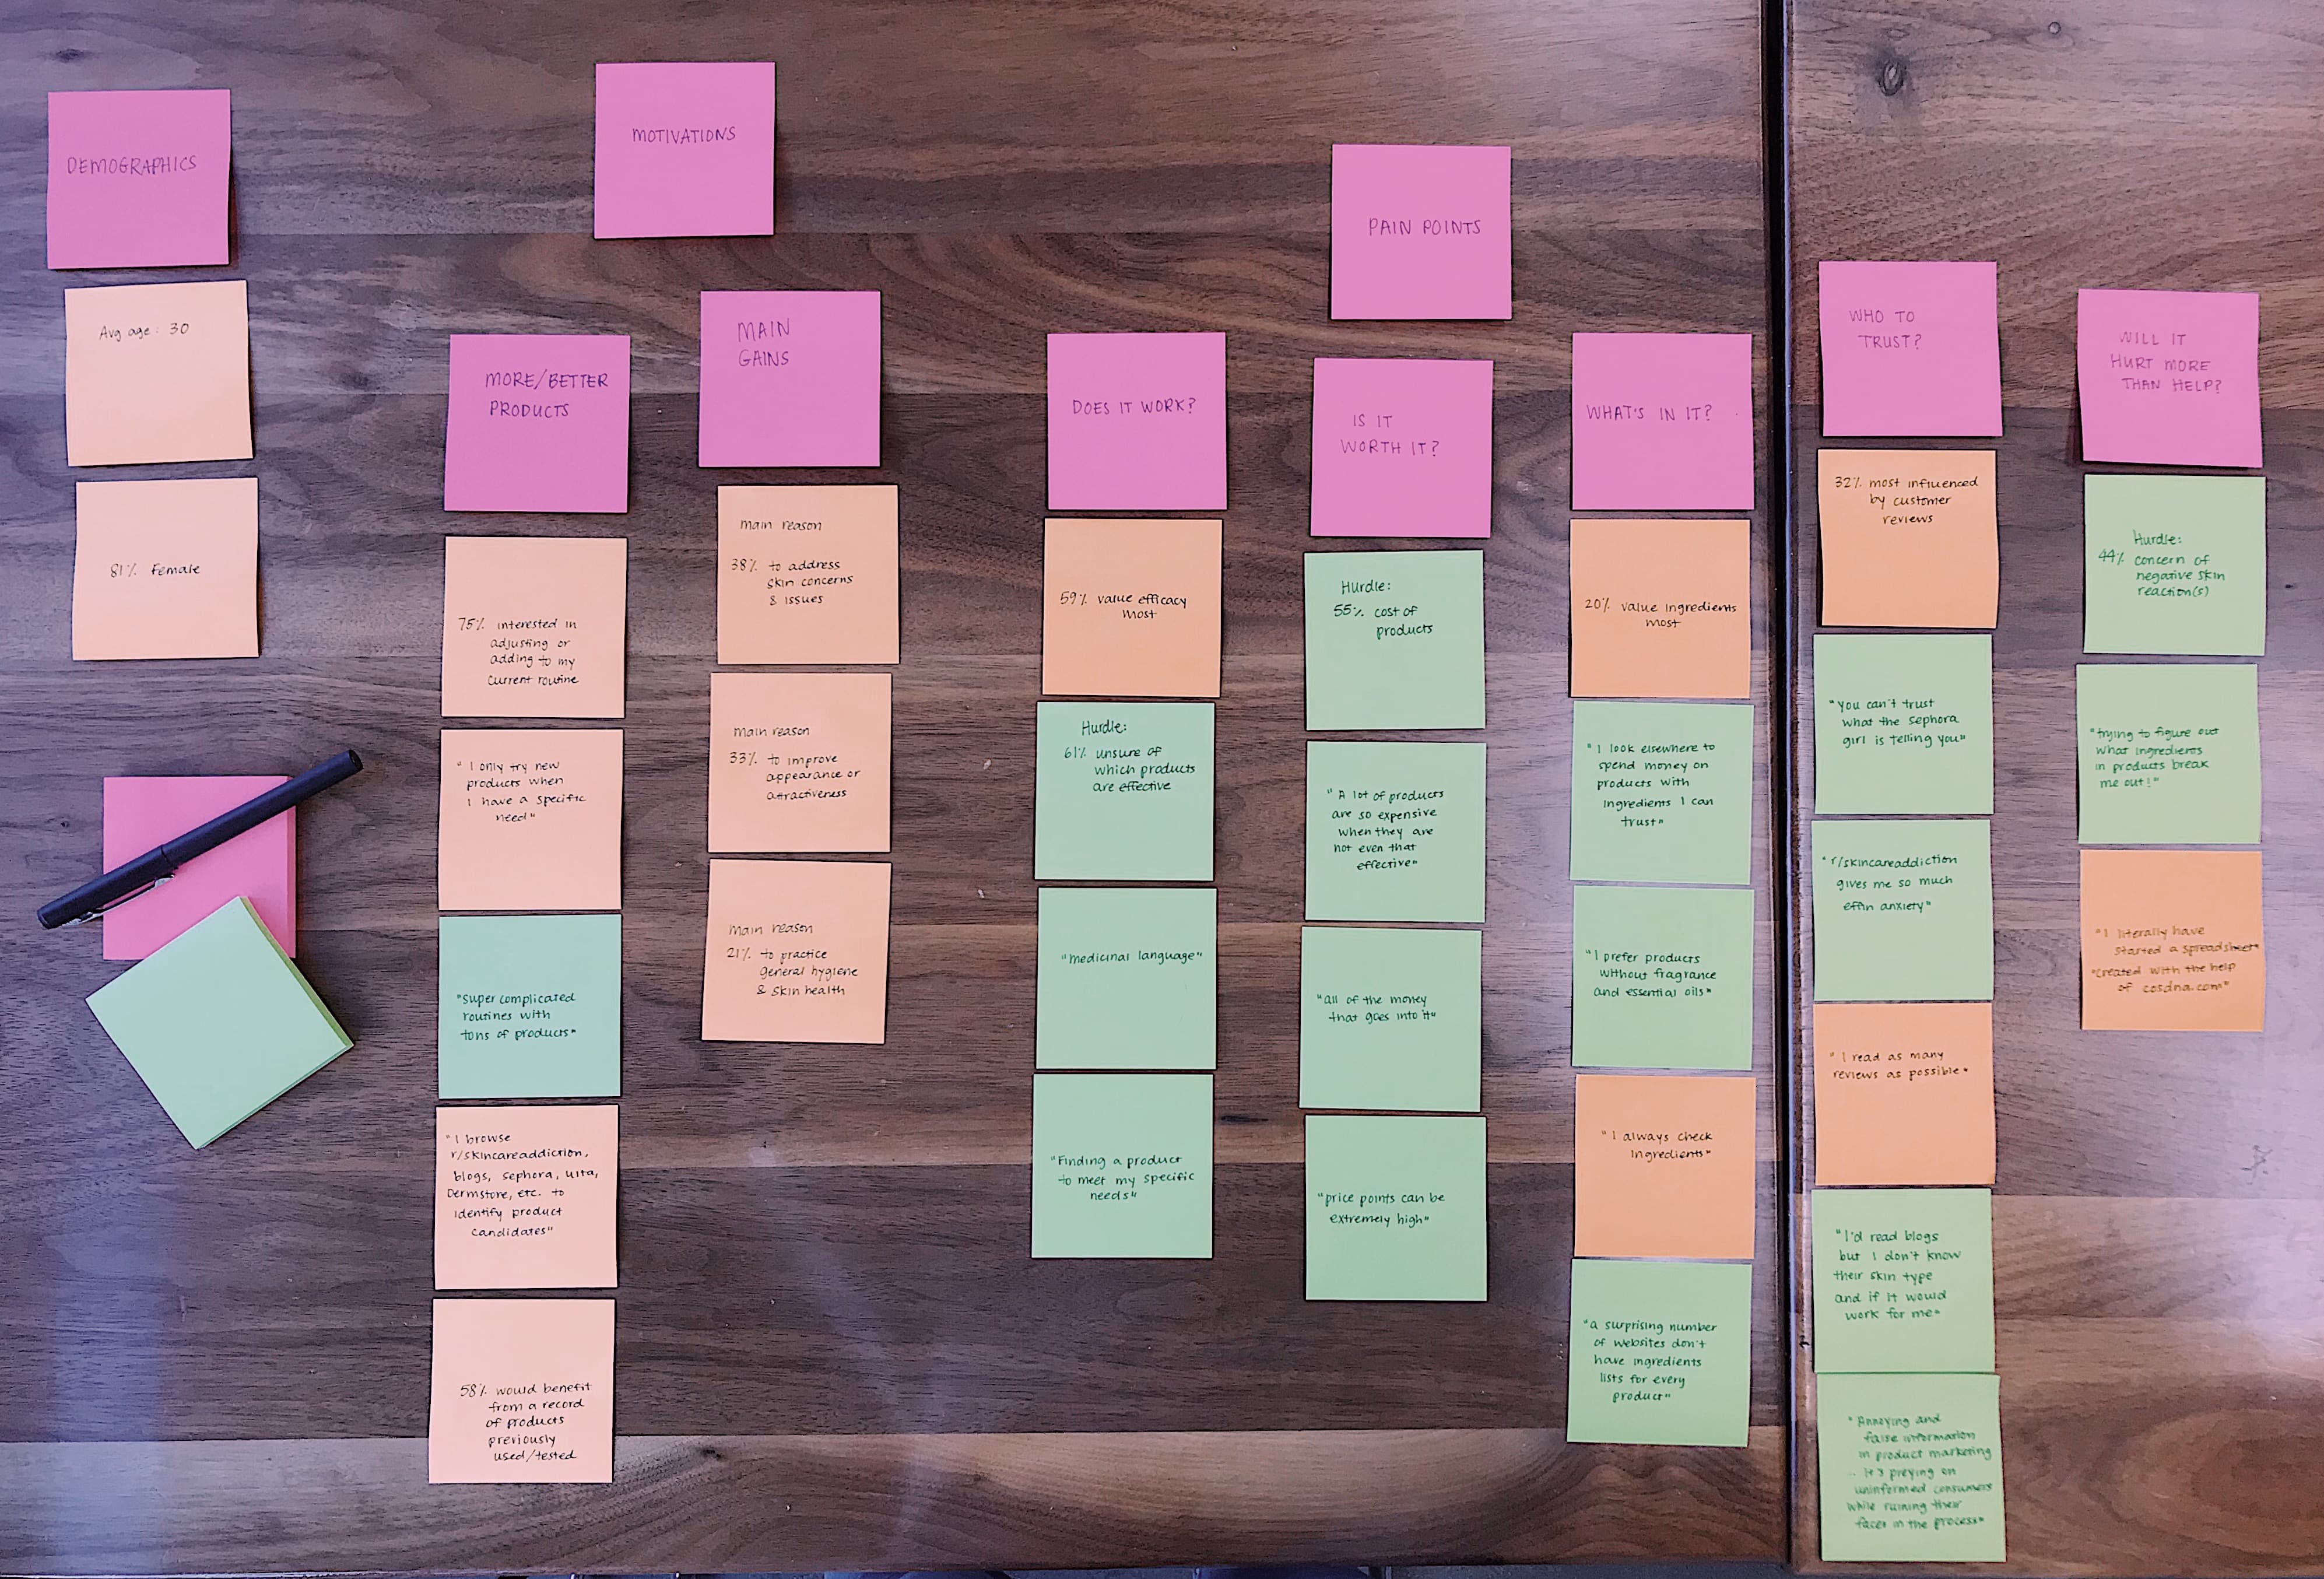 DEMOGRAPHICS
Avg age: 30
81% Female
MOTIVATIONS
MORE/BETTER
PRODUCTS
75% interested in
adjusting or
adding to my
current routine
"I only try new
products when
I have a specific
need"
"Super complicated
routines with
tons of products"
"I browse
r/skincareaddiction,
blogs, sephora, ulta,
Dermstore, etc. to
identify product
candidates"
58% would benefit
from a record
of products
previously
used/tested
MAIN
GAINS
Main reason
38% to address
skin concerns
& issues
Main reason
33% to improve
appearance or
attractiveness
Main reason
21% to practice
general hygiene
& skin health
PAIN POINTS
DOES IT WORK?
59% value efficacy
most
Hurdle:
61% unsure of
which products
are effective
"medicinal language"
"Finding a product
to meet my specific
needs"
IS IT
WORTH IT?
Hurdle:
55% cost of
products
"A lot of products
are so expensive
when they are
not even that
effective"
"all of the money
that goes into it"
"price points can be
extremely high"
WHAT'S IN IT?
20% value ingredients
most
"I look elsewhere to
spend money on
products with
ingredients I can
trust"
"I prefer products
without fragrance
and essential oils"
"I always check
ingredients"
"a surprising number
of websites don't
have ingredients
lists for every
product"
WHO TO
TRUST?
32% most influenced
by customer
reviews
"you can't trust
what the sephora
girl is telling you"
"r/skincareaddiction
gives me so much
effin anxiety"
"I read as many
reviews as possible"
"I'd read blogs
but I don't know
their skin type
and if it would
work for me"
"Annoying and
false information
in product marketing
.. it's preying on
uninformed consumers
while ruining their
faces in the process"
WILL IT
HURT MORE
THAN HELP?
Hurdle:
44% concern of
negative skin
reaction(s)
"trying to figure out
what ingredients
in products break
me out!"
"I literally have
started a spreadsheet"
"created with the help
of cosdna.com"